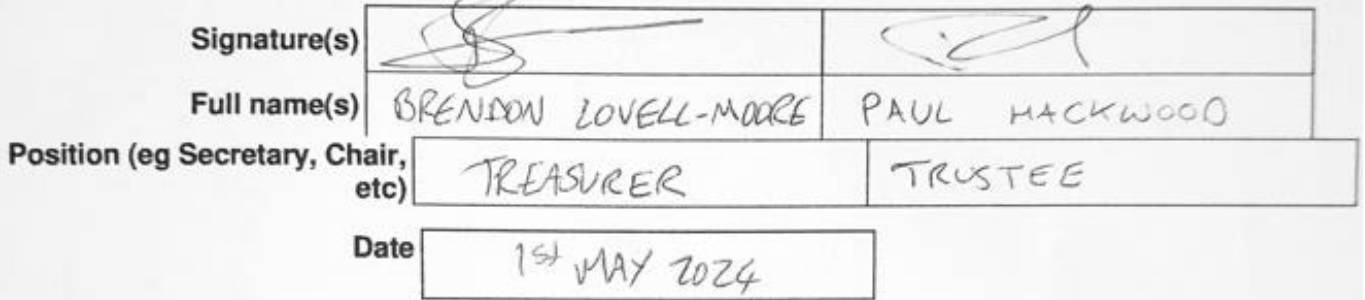 Signature(s)
Full name(s) BRENDON LOVELL-MOORE PAUL HACKWOOD
Position (eg Secretary, Chair,
etc) TREASURER TRUSTEE
Date 1st MAY 2024